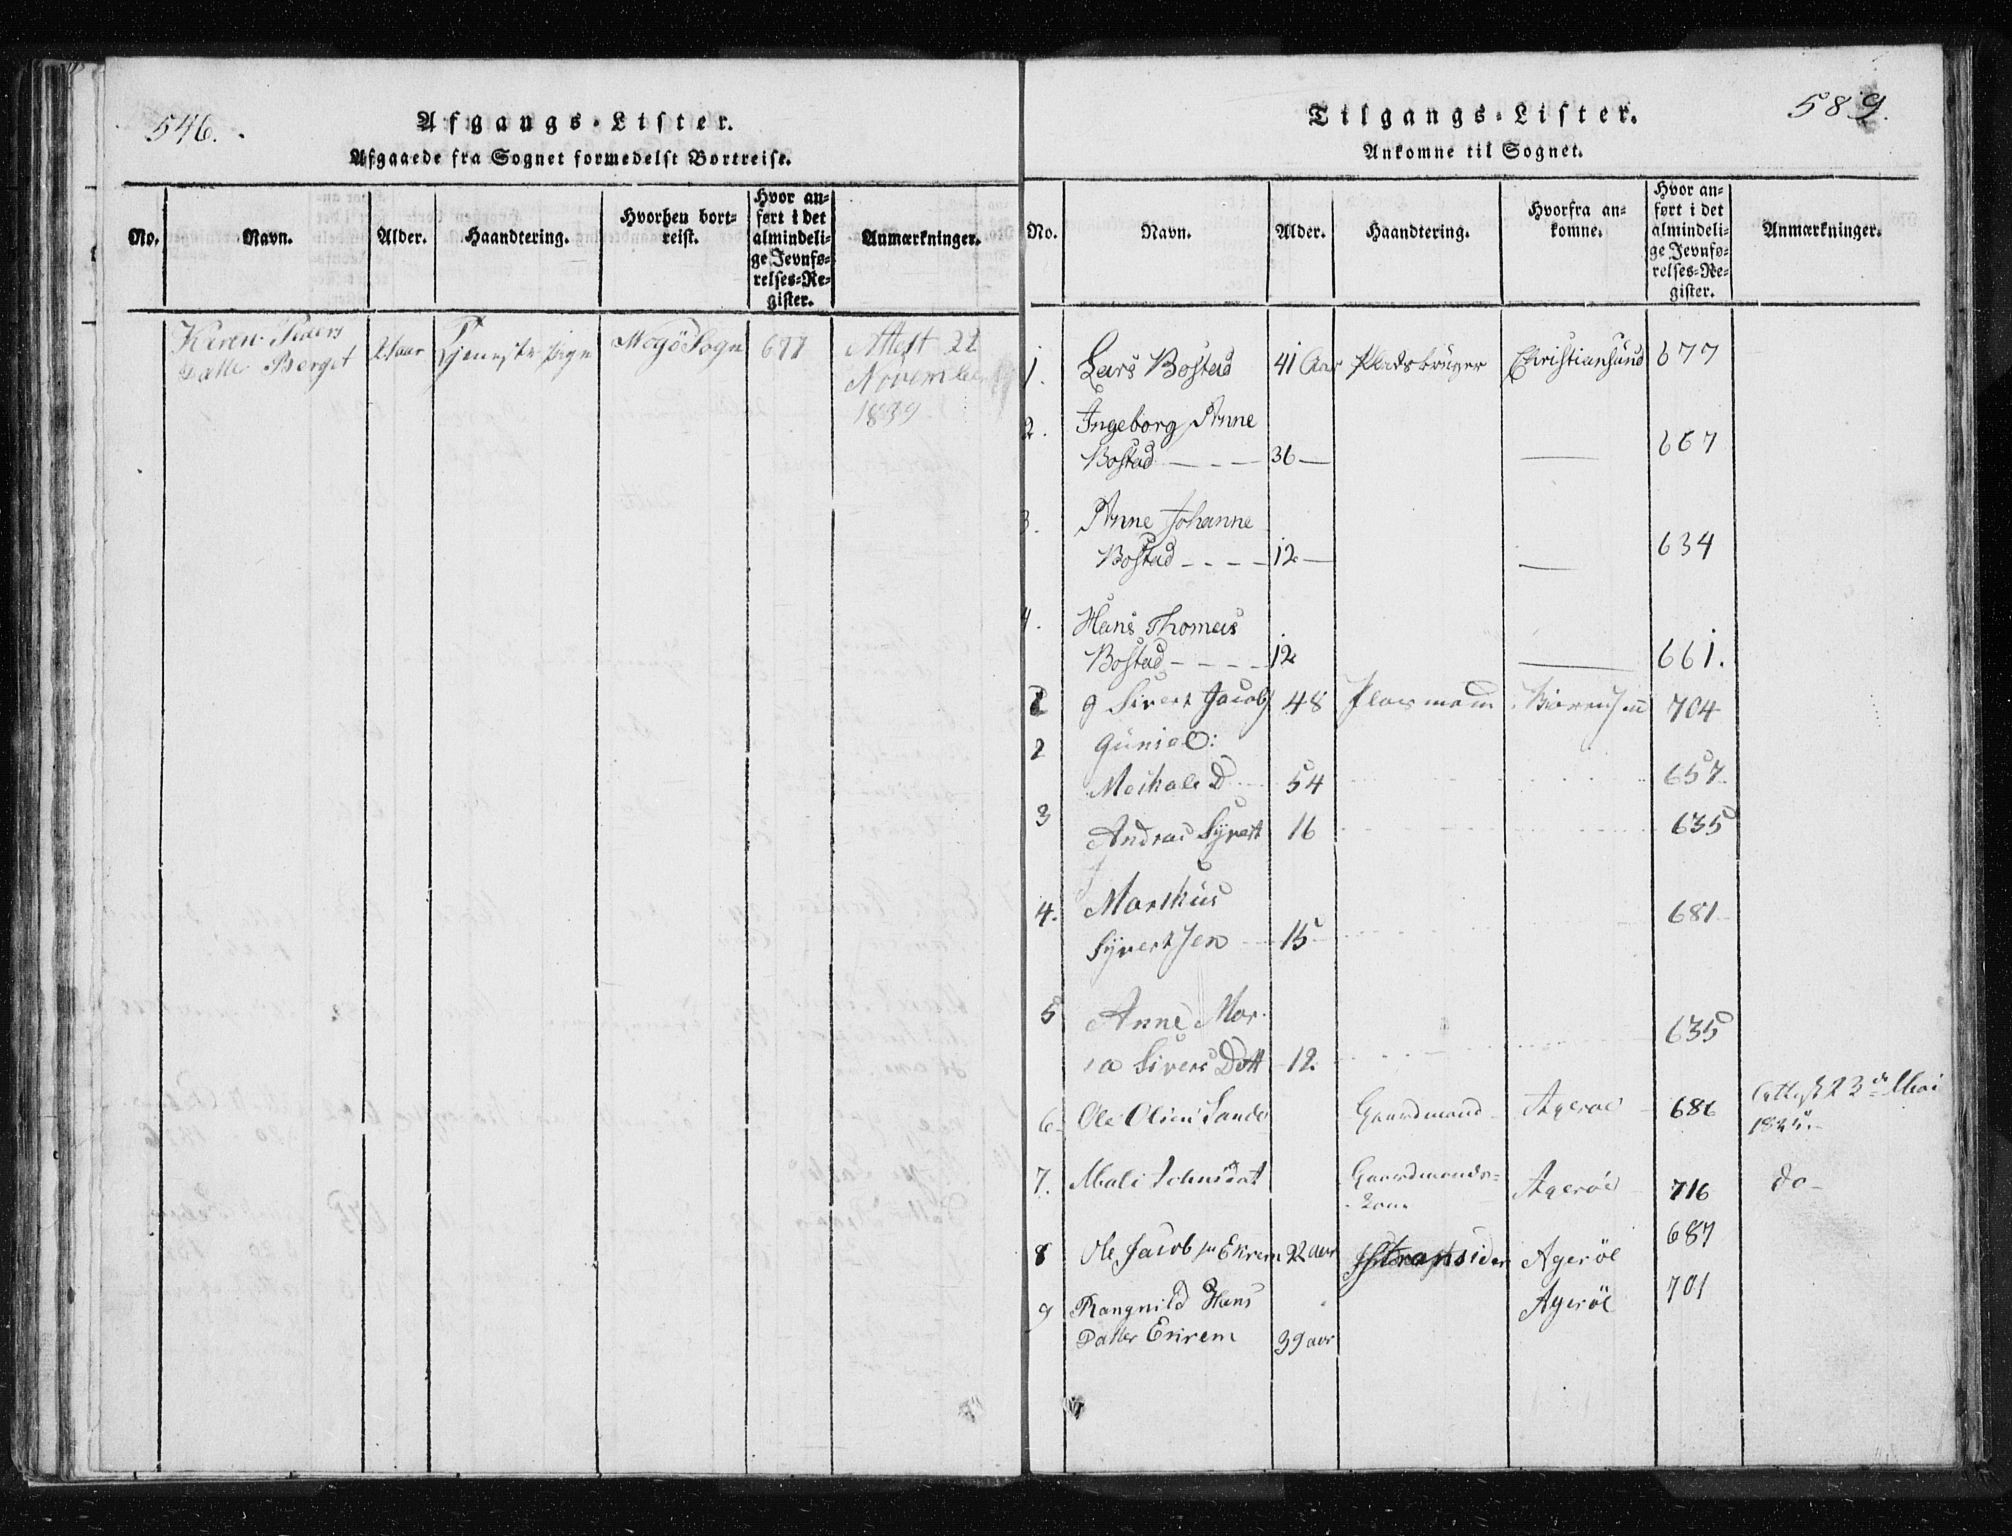 546.
Afgangs-Lister.
Afgaaede fra Sognet formedelst Bortreise.
No.
Navn.
Alder.
Haandtering.
Hvorhen bort-
reist.
Hvor an-
ført i det
almindeli-
ge Jevnfø-
relses-Re-
gister.
Anmærkninger.
Karen Peders
Datte Berget
21 aar
Tjeneste pige
Sogn
677
Attest 22
November
1839
589.
Tilgangs-Lister.
Ankomne til Sognet.
No.
Navn.
Alder.
Haandtering.
Hvorfra an-
komne.
Hvor an-
ført i det
almindeli-
ge Jevnfø-
relses-Re-
gister.
Anmærkninger.
1. Lars Bostad 41 Aar Christiansund 677
2. Ingeborg Anne
Bostad 36 — — 667
3. Anne Johanne
Bostad 12 — — 634
4. Hans Thomas
Bostad 12 — 661.
1 Sivert Jacobs 48 Plasmand 704
2
54 657
3 Andras Syvert 16 635
4. Markus
Syvertsen 15 681
5 Anne Mar
ia Sivers Dott 12 635
6. Ole Olsen Sande Gaardmand Agerøe 686 Attest 23de Mai
7. Mali Gaardmands-
Kone Agerøe 716 do
8 Ole Jacobsen Ekrem 22 aar Agerøe 687
9 Rangnild Hans
Datter Ekrem 39 aar Agerøe 701